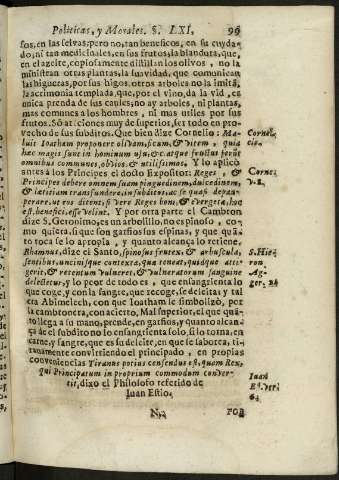 Politicas, y Morales. §. LXI. 99
sos, en las selvas: pero no, tan beneficos, en su cuyda-
do; ni tan medicinales, en sus frutos, la blandura, que,
en el azeite, copiosamente distilan los olivos, no la
ministran otras plantas, la suavidad, que comunican
las higueras, por sus higos, otros arboles no la imitã,
la acrimonia templada, que, por el vino, da la vid, es
unica prenda de sus cayles; no ay arboles, ni plantas,
mas comunes a los hombres, ni mas utiles por sus
frutos. Só aciones muy de superior, ser todo en pro-
vecho de sus subditos. Que bien dize Cornelio: Ma-
luit Ioatham proponere olivam, ficum, & vitem, quia
hæc magis sunt in hominum usu, & c. atque fructus ferũt
omnibus communes, obvios, & utilissimos. Y lo aplicó
antes a los Principes el docto Expositor: Reges, &
Principes debere omnem suam pinguedinem, dulcedinem,
& lætitiam transfundere in subditos, ac se quasi depau-
perare, ut eos ditent, si vere Reges boni, & evergetæ, hoc
est, benefici, esse velint. Y por otra parte el Cambron
dize S. Geronimo, es un arbolillo, no espinoso, co-
mo quiera, si que son garfios sus espinas, y que quã-
to toca se lo apropia, y quanto alcança lo retiene.
Rhamnus, dize el Santo, spinosus frutex, & arbuscula,
sentibus, uncinisque contexta, quæ teneat, quidquid atte-
gerit, & retentum vulneret, & vulneratorum sanguine
delectetur, y lo peor de todo es, que ensangrienta lo
que coge, y con la sangre, que recoge, se deleita; y tal
era Abimelech, con que Ioatham le simbolizò, por
la cambronera, con acierto. Mal superior, el que quã-
to llega a su mano, prende, en garfios, y quanto alcan-
ça de el subdito no lo ensangrienta solo, si lo torna, en
carne, y sangre, que es su deleite, en que se saborea, ti-
ranamente convirtiendo el principado, en propias
conveniencias Tiranus potius censendus est, quam Rex,
qui Principatum in proprium commodum conver-
tit, dixo el Philosofo referido de
Iuan Estio.
Corneli.
cia.
Corne.
v. 8.
S. Hie-
ron.
Ag-
ger.
Iuan
N2
POR